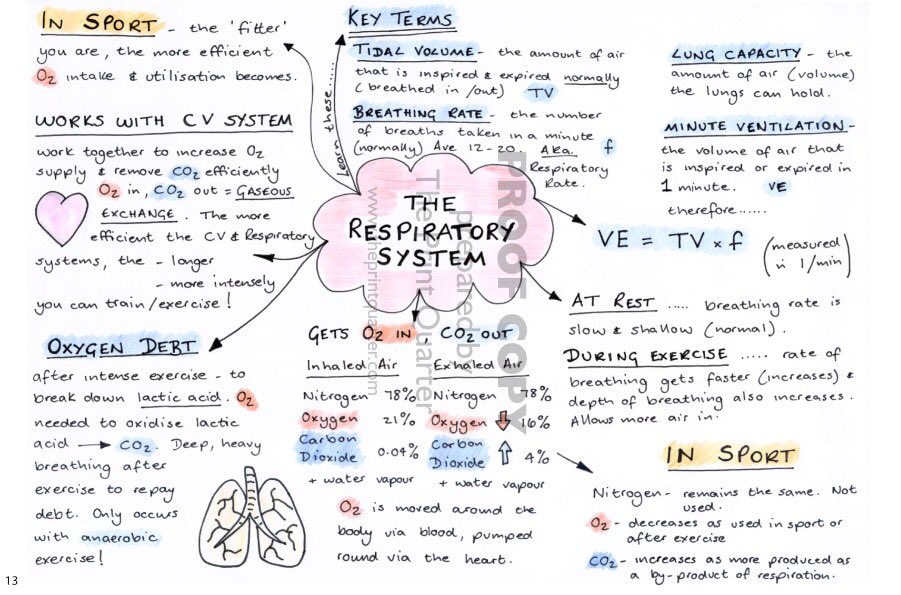 IN SPORT - the 'fitter'
you are, the more efficient
O2 intake & utilisation becomes.
WORKS WITH CV SYSTEM
work together to increase O2
supply & remove CO2 efficiently
O2 in, CO2 out = GASEOUS
EXCHANGE. The more
efficient the CV & Respiratory
systems, the - longer
- more intensely
you can train/exercise!
OXYGEN DEBT
after intense exercise - to
break down lactic acid. O2
needed to oxidise lactic
acid → CO2. Deep, heavy
breathing after
exercise to repay
debt. Only occurs
with anaerobic
exercise!
Learn these......
KEY TERMS
TIDAL VOLUME - the amount of air
that is inspired & expired normally
(breathed in/out) TV
BREATHING RATE - the number
of breaths taken in a minute
(normally) Ave 12-20. AKA. f
Respiratory
Rate.
LUNG CAPACITY - the
amount of air (volume)
the lungs can hold.
MINUTE VENTILATION -
the volume of air that
is inspired or expired in
1 minute. VE
therefore......
VE = TV x f
(measured
in l/min)
THE
RESPIRATORY
SYSTEM
PROOF COPY
prepared by
The Print Quarter
www.theprintquarter.com
AT REST ..... breathing rate is
slow & shallow (normal).
DURING EXERCISE ..... rate of
breathing gets faster (increases) &
depth of breathing also increases.
Allows more air in.
GETS O2 IN, CO2 OUT
Inhaled Air Exhaled Air
Nitrogen 78% Nitrogen 78%
Oxygen 21% Oxygen ↓ 16%
Carbon
Dioxide 0.04%
Carbon
Dioxide ↑ 4%
+ water vapour + water vapour
O2 is moved around the
body via blood, pumped
round via the heart.
IN SPORT
Nitrogen - remains the same. Not
used.
O2 - decreases as used in sport or
after exercise
CO2 - increases as more produced as
a by-product of respiration.
13